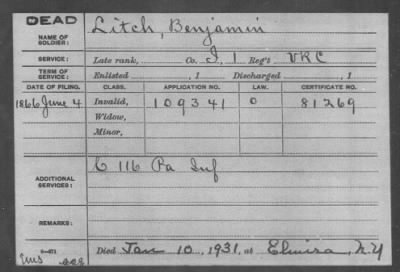 DEAD
NAME OF SOLDIER: Litch, Benjamin
SERVICE: Late rank, Co. I, 1 Reg't VRC
TERM OF SERVICE: Enlisted , 1 Discharged , 1
DATE OF FILING. CLASS. APPLICATION NO. LAW. CERTIFICATE NO.
1866 June 4 Invalid, 109341 O 81269
Widow,
Minor,
ADDITIONAL SERVICES: C 116 Pa Inf
REMARKS:
Died Jan 10, 1931, at Elmira, N.Y